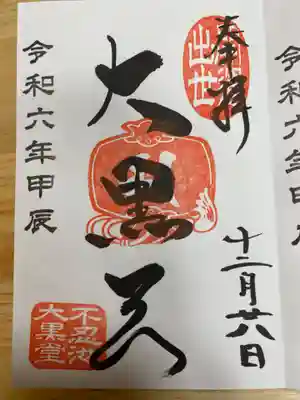 奉拝
出世
十二月廿八日
大黒天
不忍池
大黒堂
令和六年甲辰